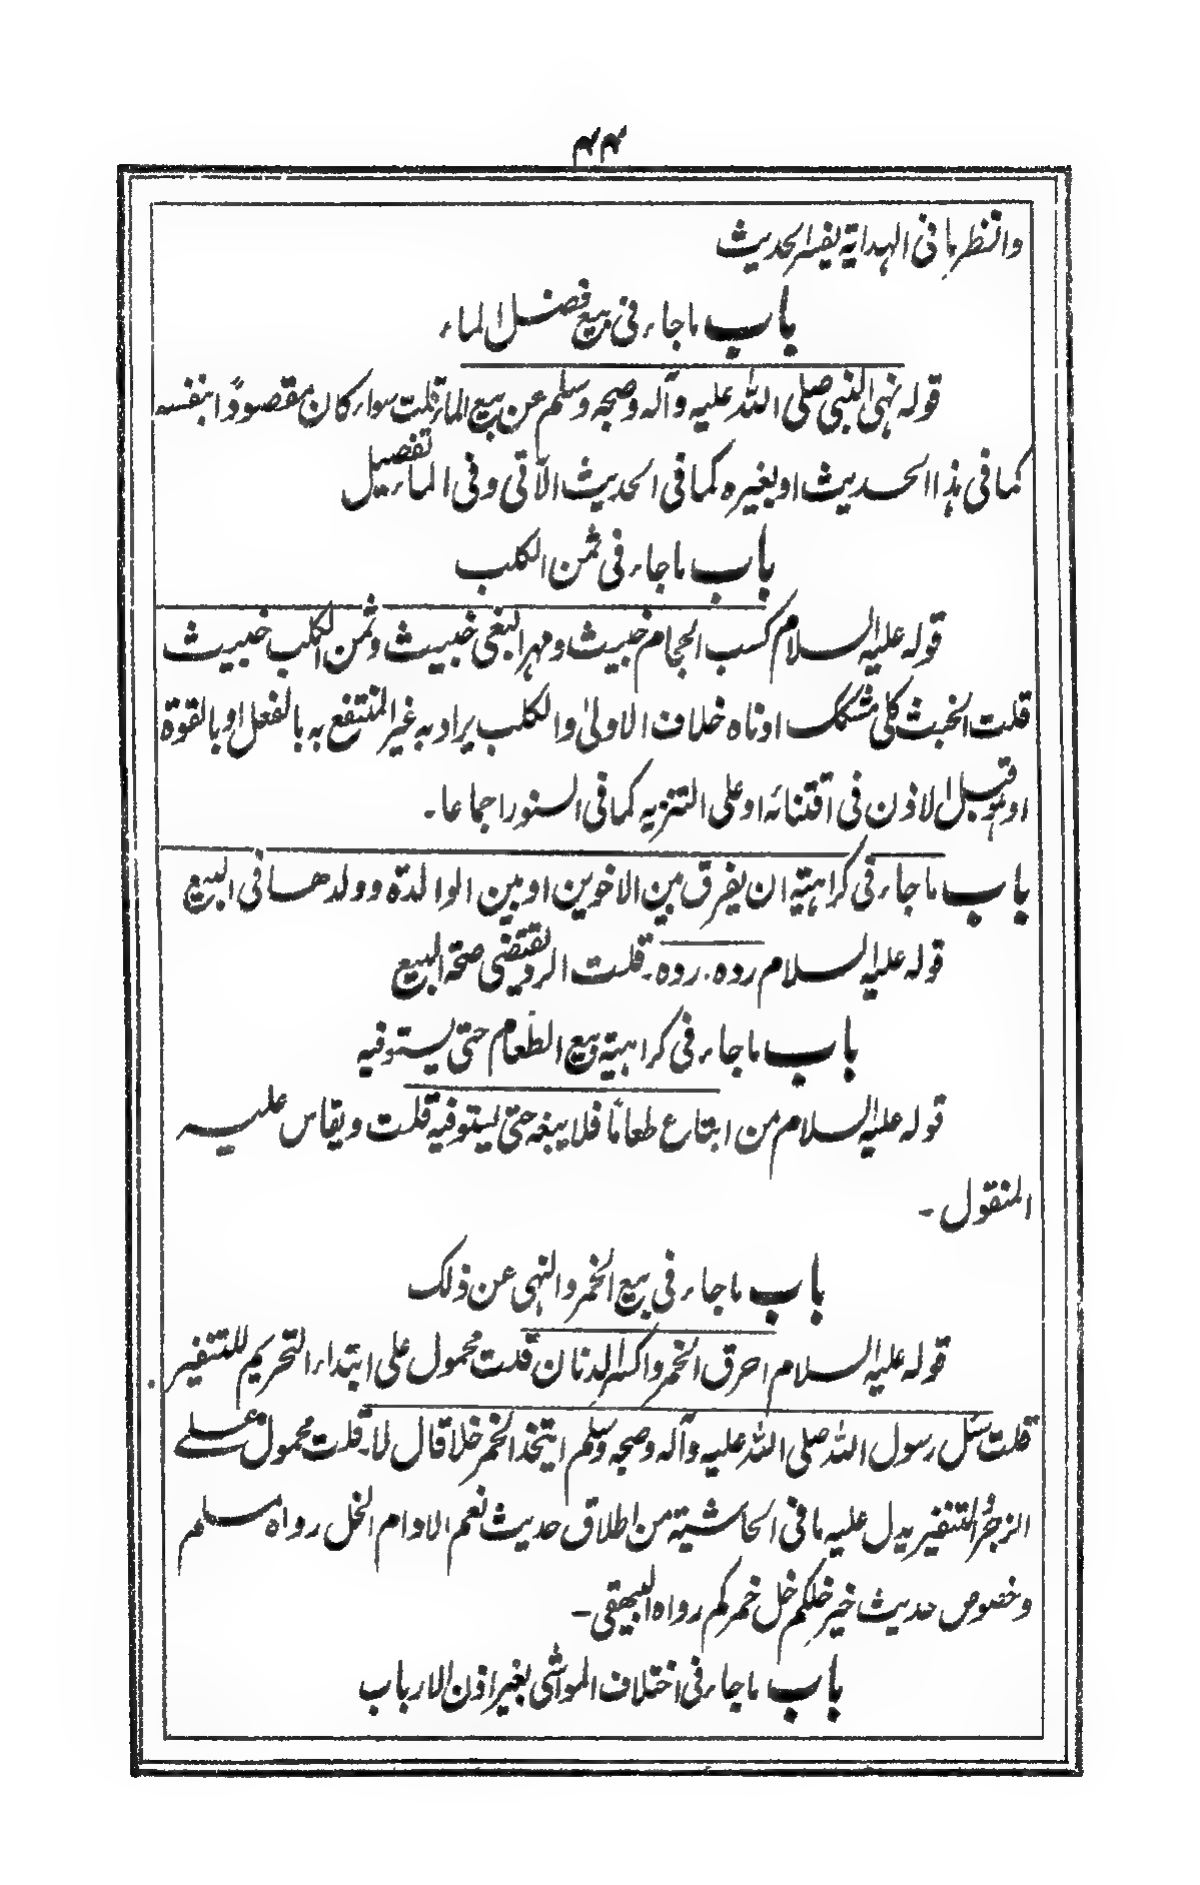 ۴۴
وانظر ما فی الہدایة یفسر الحدیث
باب ماجاء فی بیع فضل الماء
قولہ نہی النبی صلی اللہ علیہ وآلہ وصحبہ وسلم عن بیع الماء قلت سواء کان مقصودًا بنفسہ
کما فی ہذا الحدیث او بغیرہ کما فی الحدیث الآتی وفی الماء تفصیل
باب ماجاء فی ثمن الکلب
قولہ علیہ السلام کسب الحجام خبیث ومہر البغی خبیث وثمن الکلب خبیث
قلت الخبث کلی مشکک ادناہ خلاف الاولیٰ والکلب یراد بہ غیر المنتفع بہ بالفعل او بالقوة
او ہو قبل الاذن فی اقتنائہ او علی التنزیہ کما فی السنور اجماعا۔
باب ماجاء فی کراہیة ان یفرق بین الاخوین او بین الوالدة وولدھا فی البیع
قولہ علیہ السلام ردہ۔ ردہ۔ قلت الرد یقتضی صحة البیع
باب ماجاء فی کراہیة بیع الطعام حتی یستوفیہ
قولہ علیہ السلام من ابتاع طعامًا فلا یبعہ حتی یستوفیہ قلت ویقاس علیہ
المنقول۔
باب ماجاء فی بیع الخمر والنہی عن ذلک
قولہ علیہ السلام احرق الخمر واکسر الدنان قلت محمول علی ابتداء التحریم للتنفیر۔
قلت سئل رسول اللہ صلی اللہ علیہ وآلہ وصحبہ وسلم ایتخذ الخمر خلا قال لا۔ قلت محمول علے
الزجر والتنفیر یدل علیہ ما فی الحاشیة من اطلاق حدیث نعم الادام الخل رواہ مسلم
وخصوص حدیث خیر خلکم خل خمرکم رواہ البیہقی۔
باب ماجاء فی اختلاف المواشی بغیر اذن الارباب